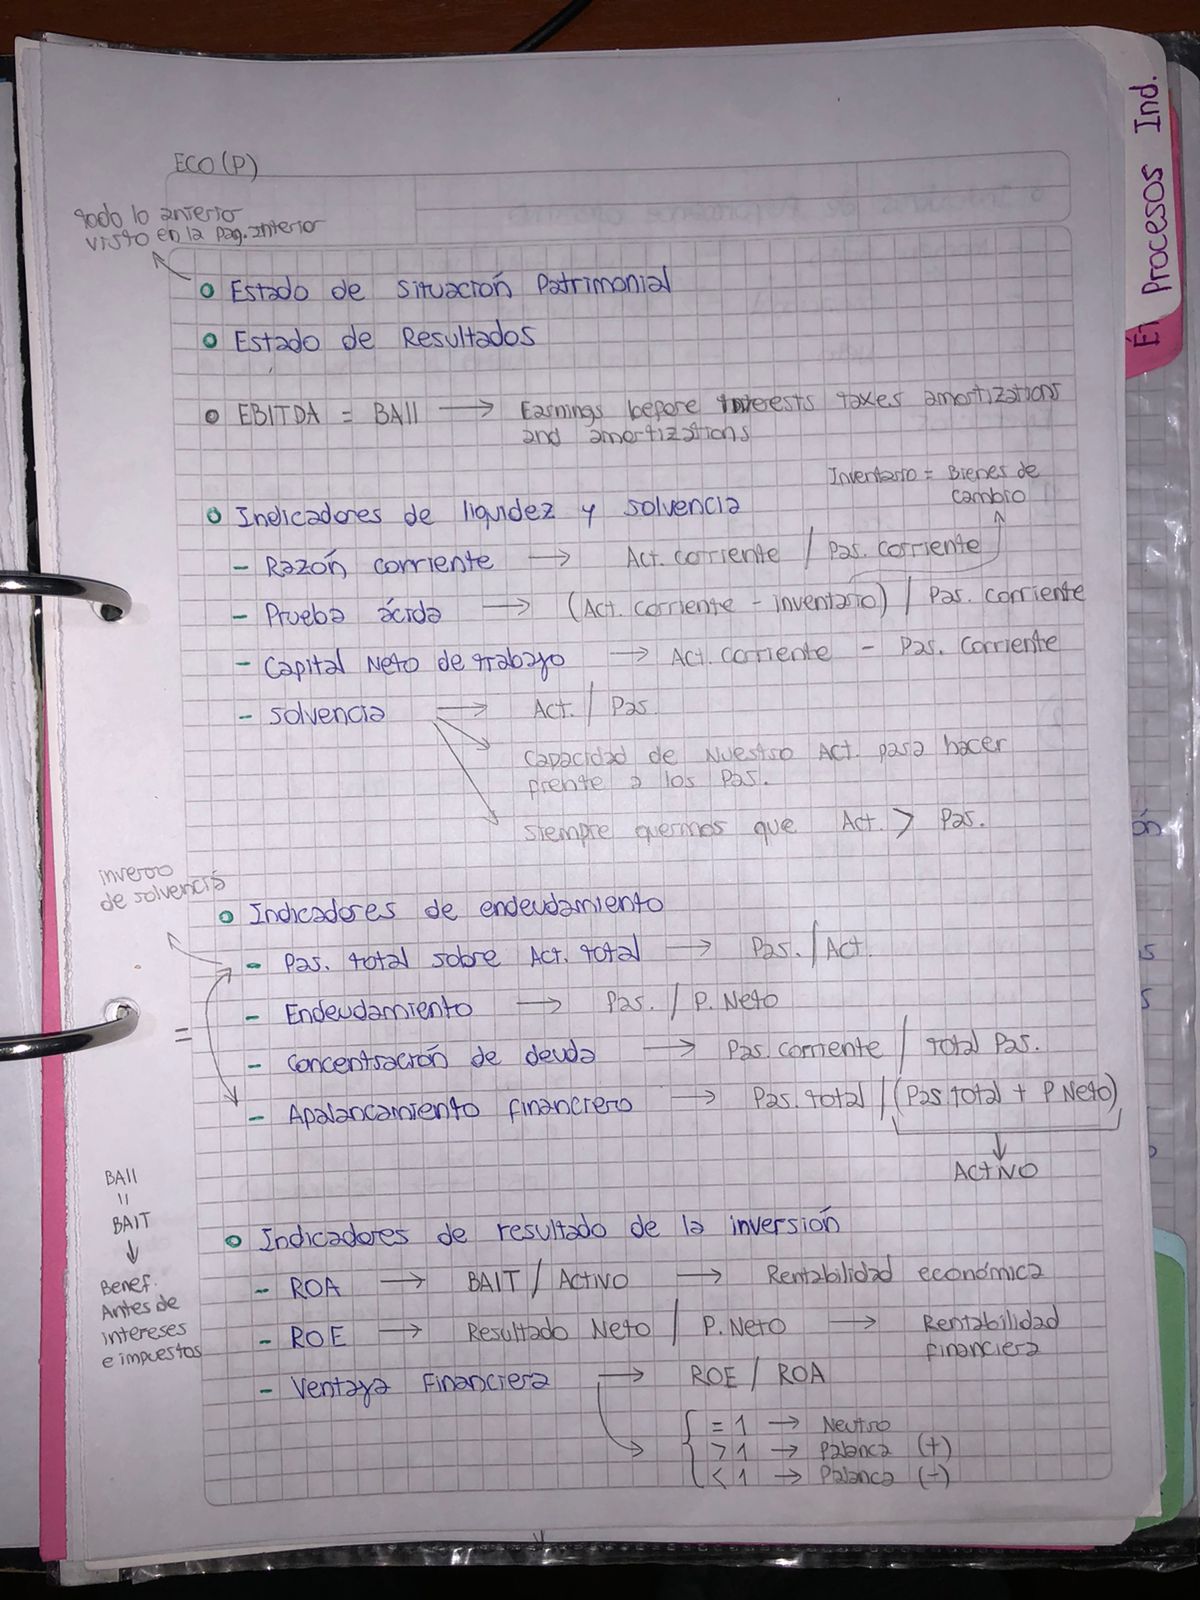 ECO (P)
todo lo anterio
visto en la pag. anterior
Estado de Situación Patrimonial
Estado de Resultados
EBITDA = BAII → Earnings bepore interests taxes amortizations
and amortizations
Inventario = Bienes de
cambio
Indicadores de liquidez y solvencia
- Razón corriente → Act. corriente / Pas. corriente
- Prueba ácida → (Act. corriente - inventario) / Pas. corriente
- Capital Neto de trabajo → Act. corriente - Pas. Corriente
- Solvencia → Act. / Pas.
Capacidad de Nuestro Act. para hacer
frente a los Pas.
siempre quermos que Act. > Pas.
inverso
de solvencia
Indicadores de endeudamiento
- Pas. total sobre Act. total → Pas. / Act.
- Endeudamiento → Pas. / P. Neto
=
- Concentración de deuda → Pas. corriente / total Pas.
- Apalancamiento financiero → Pas. total / (Pas. total + P. Neto)
ACTIVO
BAII
=
BAIT
↓
Benef.
Antes de
intereses
e impuestos
Indicadores de resultado de la inversión
- ROA → BAIT / Activo → Rentabilidad económica
- ROE → Resultado Neto / P. Neto → Rentabilidad
financiera
- Ventaja Financiera → ROE / ROA
= 1 → Neutro
> 1 → Palanca (+)
< 1 → Palanca (-)
Procesos Ind.